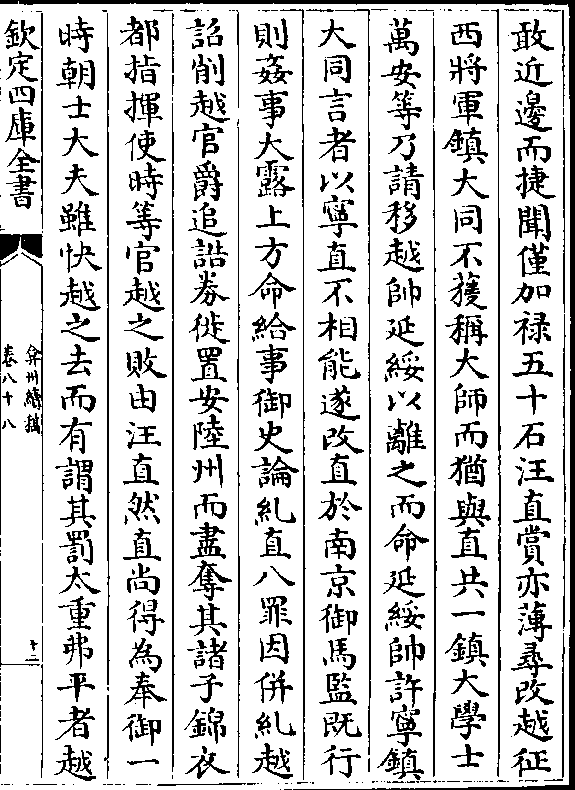 敢近邊而捷聞僅加禄五十石汪直賞亦薄尋改越征
西將軍鎮大同不獲稱大帥而猶與直共一鎮大學士
萬安等乃請移越帥延綏以離之而命延綏帥許寧鎮
大同言者以寧直不相能遂改直於南京御馬監既行
則姦事大露上方命給事御史論糺直八罪因併糺越
詔削越官爵追誥劵徙置安陸州而盡奪其諸子錦衣
都指揮使時等官越之敗由汪直然直尚得為奉御一
時朝士大夫雖快越之去而有謂其罰太重弗平者越
欽定四庫全書
弇州續稿
卷八十八
十二